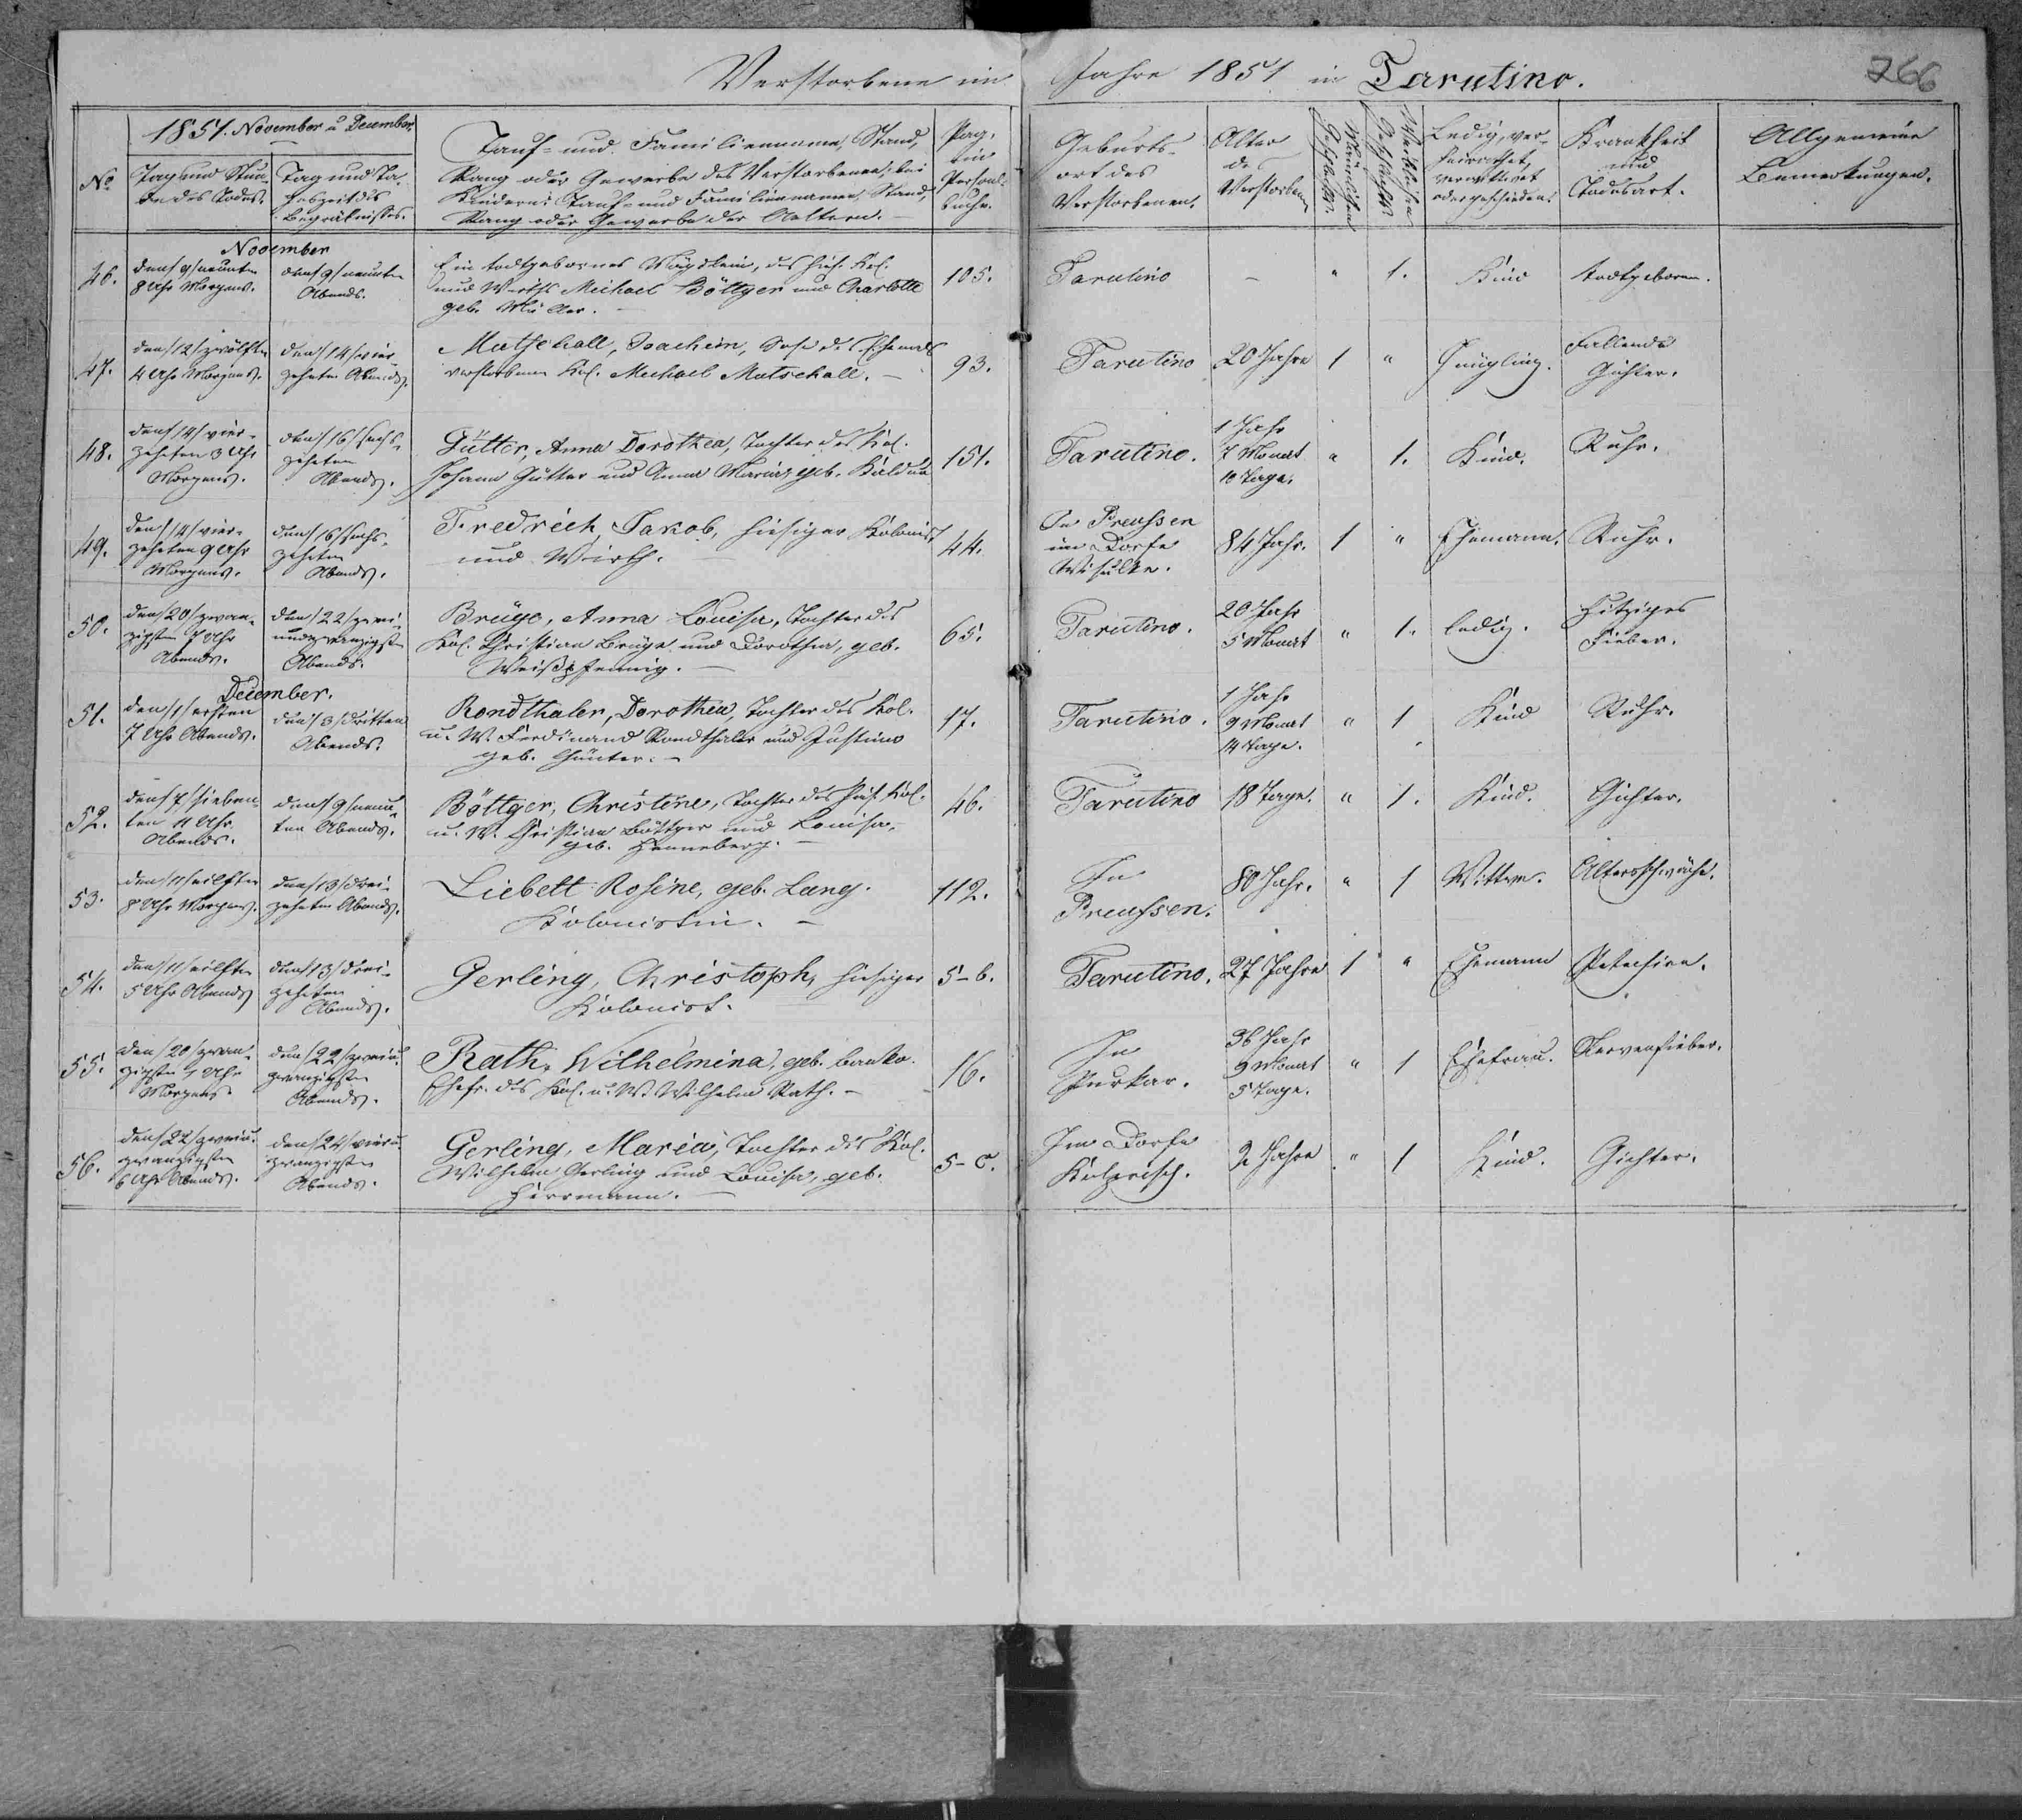 Verstorbene im Jahre 1851 in Tarutino.
266
No.
1851. November u December.
Tag und Stun-
de des Todes.
Tag und Ta-
geszeit des
Begräbnisses.
Tauf- und Familienname, Stand,
Rang oder Gewerbe des Verstorbenen; bei
Kindern: Tauf- und Familiennamen, Stand,
Rang oder Gewerbe der Aeltern.
Pag.
im
Personal-
buche.
Geburts-
ort des
Verstorbenen.
Alter
des
Verstorbenen
Männlichen
Geschlechts.
Weiblichen
Geschlechts.
Ledig, ver-
heirathet,
verwittwet
oder geschieden.
Krankheit
und
Todesart.
Allgemeine
Bemerkungen.
November
46.
den /9/ neunten
8 Uhr Morgens.
den /9/ neunten
Abends.
Ein todtgebornes Mägdlein, des hies. Kol.
und Wirths Michael Böttger und Charlotte
geb. Müller.
105.
Tarutino
-
"
1.
Kind
todtgeboren.
47.
den /12/ zwölften
4 Uhr Morgens.
den /14/ vier-
zehnten Abends.
Mutschall, Joachim, Sohn des
verstorbenen Kol. Michael Mutschall. -
93.
Tarutino
20 Jahre
1
"
Jüngling.
Fallende
Gichter.
48.
den /14/ vier-
zehnten 3 Uhr
Morgens.
den /16/ sechs-
zehnten
Abends.
Gütter, Anna Dorothea, Tochter des Kol.
Johann Gütter und Anna Maria geb. Kaldun
151.
Tarutino.
1 Jahr
7 Monat
10 Tage.
"
1.
Kind.
Ruhr.
49.
den /14/ vier-
zehnten 9 Uhr
Morgens.
den /16/ sechs-
zehnten
Abends.
Fredrich Jakob, hiesiger Kolonist
und Wirth.
44.
In Preussen
im Dorfe
84 Jahr.
1
"
Ehemann.
Ruhr.
50.
den /20/ zwan-
zigsten 7 Uhr
Abends.
den /22/ zwei-
undzwanzigsten
Abends.
Brüge, Anna Louisa, Tochter des
Kol. Christian Brüge und Dorothea, geb.
Weißpfennig. -
65.
Tarutino.
20 Jahr
5 Monat
"
1.
ledig.
Hitziges
Fieber.
December.
51.
den /1/ ersten
7 Uhr Abends.
den /3/ dritten
Abends.
Rondthaler, Dorothea, Tochter des Kol.
u. W. Ferdinand Rondthaler und Justine
geb. Günter. -
17.
Tarutino.
1 Jahr
9 Monat
14 Tage.
"
1
Kind
Ruhr.
52.
den /7/ sieben-
ten 11 Uhr
Abends.
den /9/ neun-
ten Abends.
Böttger, Christine, Tochter des hies. Kol.
u. W. Christian Böttger und Louisa,
geb. Henneberg. -
46.
Tarutino
18 Tage.
"
1.
Kind.
Gichter.
53.
den /11/ eilften
8 Uhr Morgens.
den /13/ drei-
zehnten Abends.
Liebelt Rosine, geb. Lang.
Kolonistin. -
112.
In
Preussen.
80 Jahr.
"
1
Wittwe.
Altersschwäche.
54.
den /11/ eilften
5 Uhr Abends
den /13/ drei-
zehnten
Abends.
Gerling, Christoph, hiesiger
Kolonist.
5-b.
Tarutino.
27 Jahre
1
"
Ehemann
Petechien.
55.
den /20/ zwan-
zigsten 1 Uhr
Morgens.
den /22/ zweiu.
zwanzigsten
Abends.
Rath, Wilhelmina, geb. Banko.
Ehefr. des Kol. u. W. Wilhelm Rath. -
16.
In
Purkar.
36 Jahr
9 Monat
5 Tage.
"
1
Ehefrau.
Nervenfieber.
56.
den /22/ zweiu.
zwanzigsten
6 Uhr Abends.
den /24/ vieru.
zwanzigsten
Abends.
Gerling, Maria, Tochter des Kol.
Wilhelm Gerling und Louisa, geb.
Herrmann. -
5-c.
Im Dorfe
2 Jahre
"
1
Kind.
Gichter.